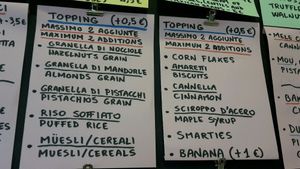 TOPPING (+0,5€)
MASSIMO 2 AGGIUNTE
MAXIMUM 2 ADDITIONS
• GRANELLA DI NOCCIOLE
HAZELNUTS GRAIN
• GRANELLA DI MANDORLE
ALMONDS GRAIN
• GRANELLA DI PISTACCHI
PISTACHIOS GRAIN
• RISO SOFFIATO
PUFFED RICE
• MÜESLI/CEREALI
MUESLI/CEREALS
TOPPING (+0,5€)
MASSIMO 2 AGGIUNTE
MAXIMUM 2 ADDITIONS
• CORN FLAKES
• AMARETI
BISCUITS
• CANNELLA
CINNAMON
• SCIROPPO D'ACERO
MAPLE SYRUP
• SMARTIES
• BANANA (+1€)
WALNU